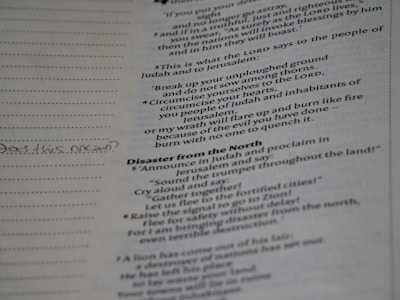 'If you put your
sight
and no longer go astray,
² and if in a truthful, just and righteous
you swear, "As surely as the LORD lives,"
then the nations will invoke blessings by him
and in him they will boast.'
³ This is what the LORD says to the people of
Judah and to Jerusalem:
'Break up your unploughed ground
and do not sow among thorns.
⁴ Circumcise yourselves to the LORD,
circumcise your hearts,
you people of Judah and inhabitants of
Jerusalem,
or my wrath will flare up and burn like fire
because of the evil you have done –
burn with no one to quench it.
this mean?
Disaster from the North
⁵ 'Announce in Judah and proclaim in
Jerusalem and say:
"Sound the trumpet throughout the land!"
Cry aloud and say:
"Gather together!
Let us flee to the fortified cities!"
⁶ Raise the signal to go to Zion!
Flee for safety without delay!
For I am bringing disaster from the north,
even terrible destruction.'
⁷ A lion has come out of his lair;
a destroyer of nations has set out.
He has left his place
to lay waste your land.
Your towns will lie in ruins